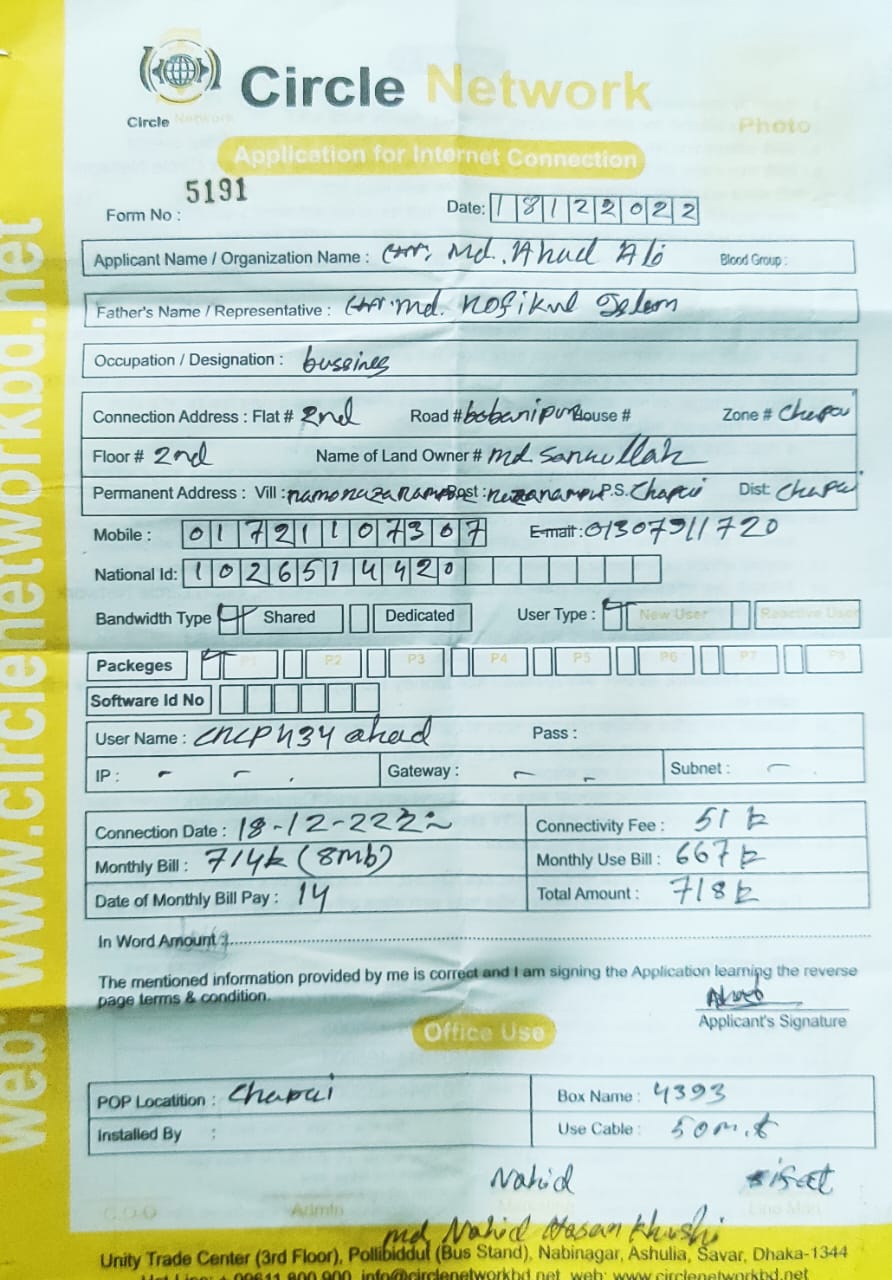 Circle Network
Circle Network
Photo
Application for Internet Connection
Form No : 5191
Date: 18122022
Applicant Name / Organization Name : Md. Ahad Ali Blood Group :
Father's Name / Representative : md. Rofikul Islam
Occupation / Designation : bussines
Connection Address : Flat # 2nd Road # House # Zone # Chapai
Floor # 2nd Name of Land Owner # md. Sanaullah
Permanent Address : Vill : Post : P.S. Chapai Dist: Chapai
Mobile : 01721107307 E-mail : 01307911720
National Id: 1026514420
Bandwidth Type Shared Dedicated User Type : New User Reactive User
Packeges P1 P2 P3 P4 P5 P6 P7 P8
Software Id No
User Name : Pass :
IP : - - . Gateway : - - Subnet : - .
Connection Date : 18-12-22 Connectivity Fee : 51 tk
Monthly Bill : 714tk (8mb) Monthly Use Bill : 667 tk
Date of Monthly Bill Pay : 14 Total Amount : 718 tk
In Word Amount :
The mentioned information provided by me is correct and I am signing the Application learning the reverse
page terms & condition.
Applicant's Signature
Office Use
POP Locatition : Chapai Box Name : 4393
Installed By : Use Cable : 50m.t
Nahid
C.O.O Admin Marketing Line Man
md Nahid Hasan Khushi
Unity Trade Center (3rd Floor), Pollibiddut (Bus Stand), Nabinagar, Ashulia, Savar, Dhaka-1344
Hot Line: + 09611 800 900, info@circlenetworkbd.net, web: www.circlenetworkbd.net
web: www.circlenetworkbd.net